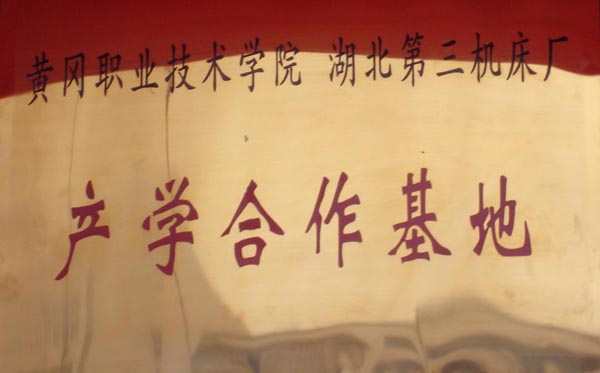 黄冈职业技术学院 湖北第三机床厂
产学合作基地